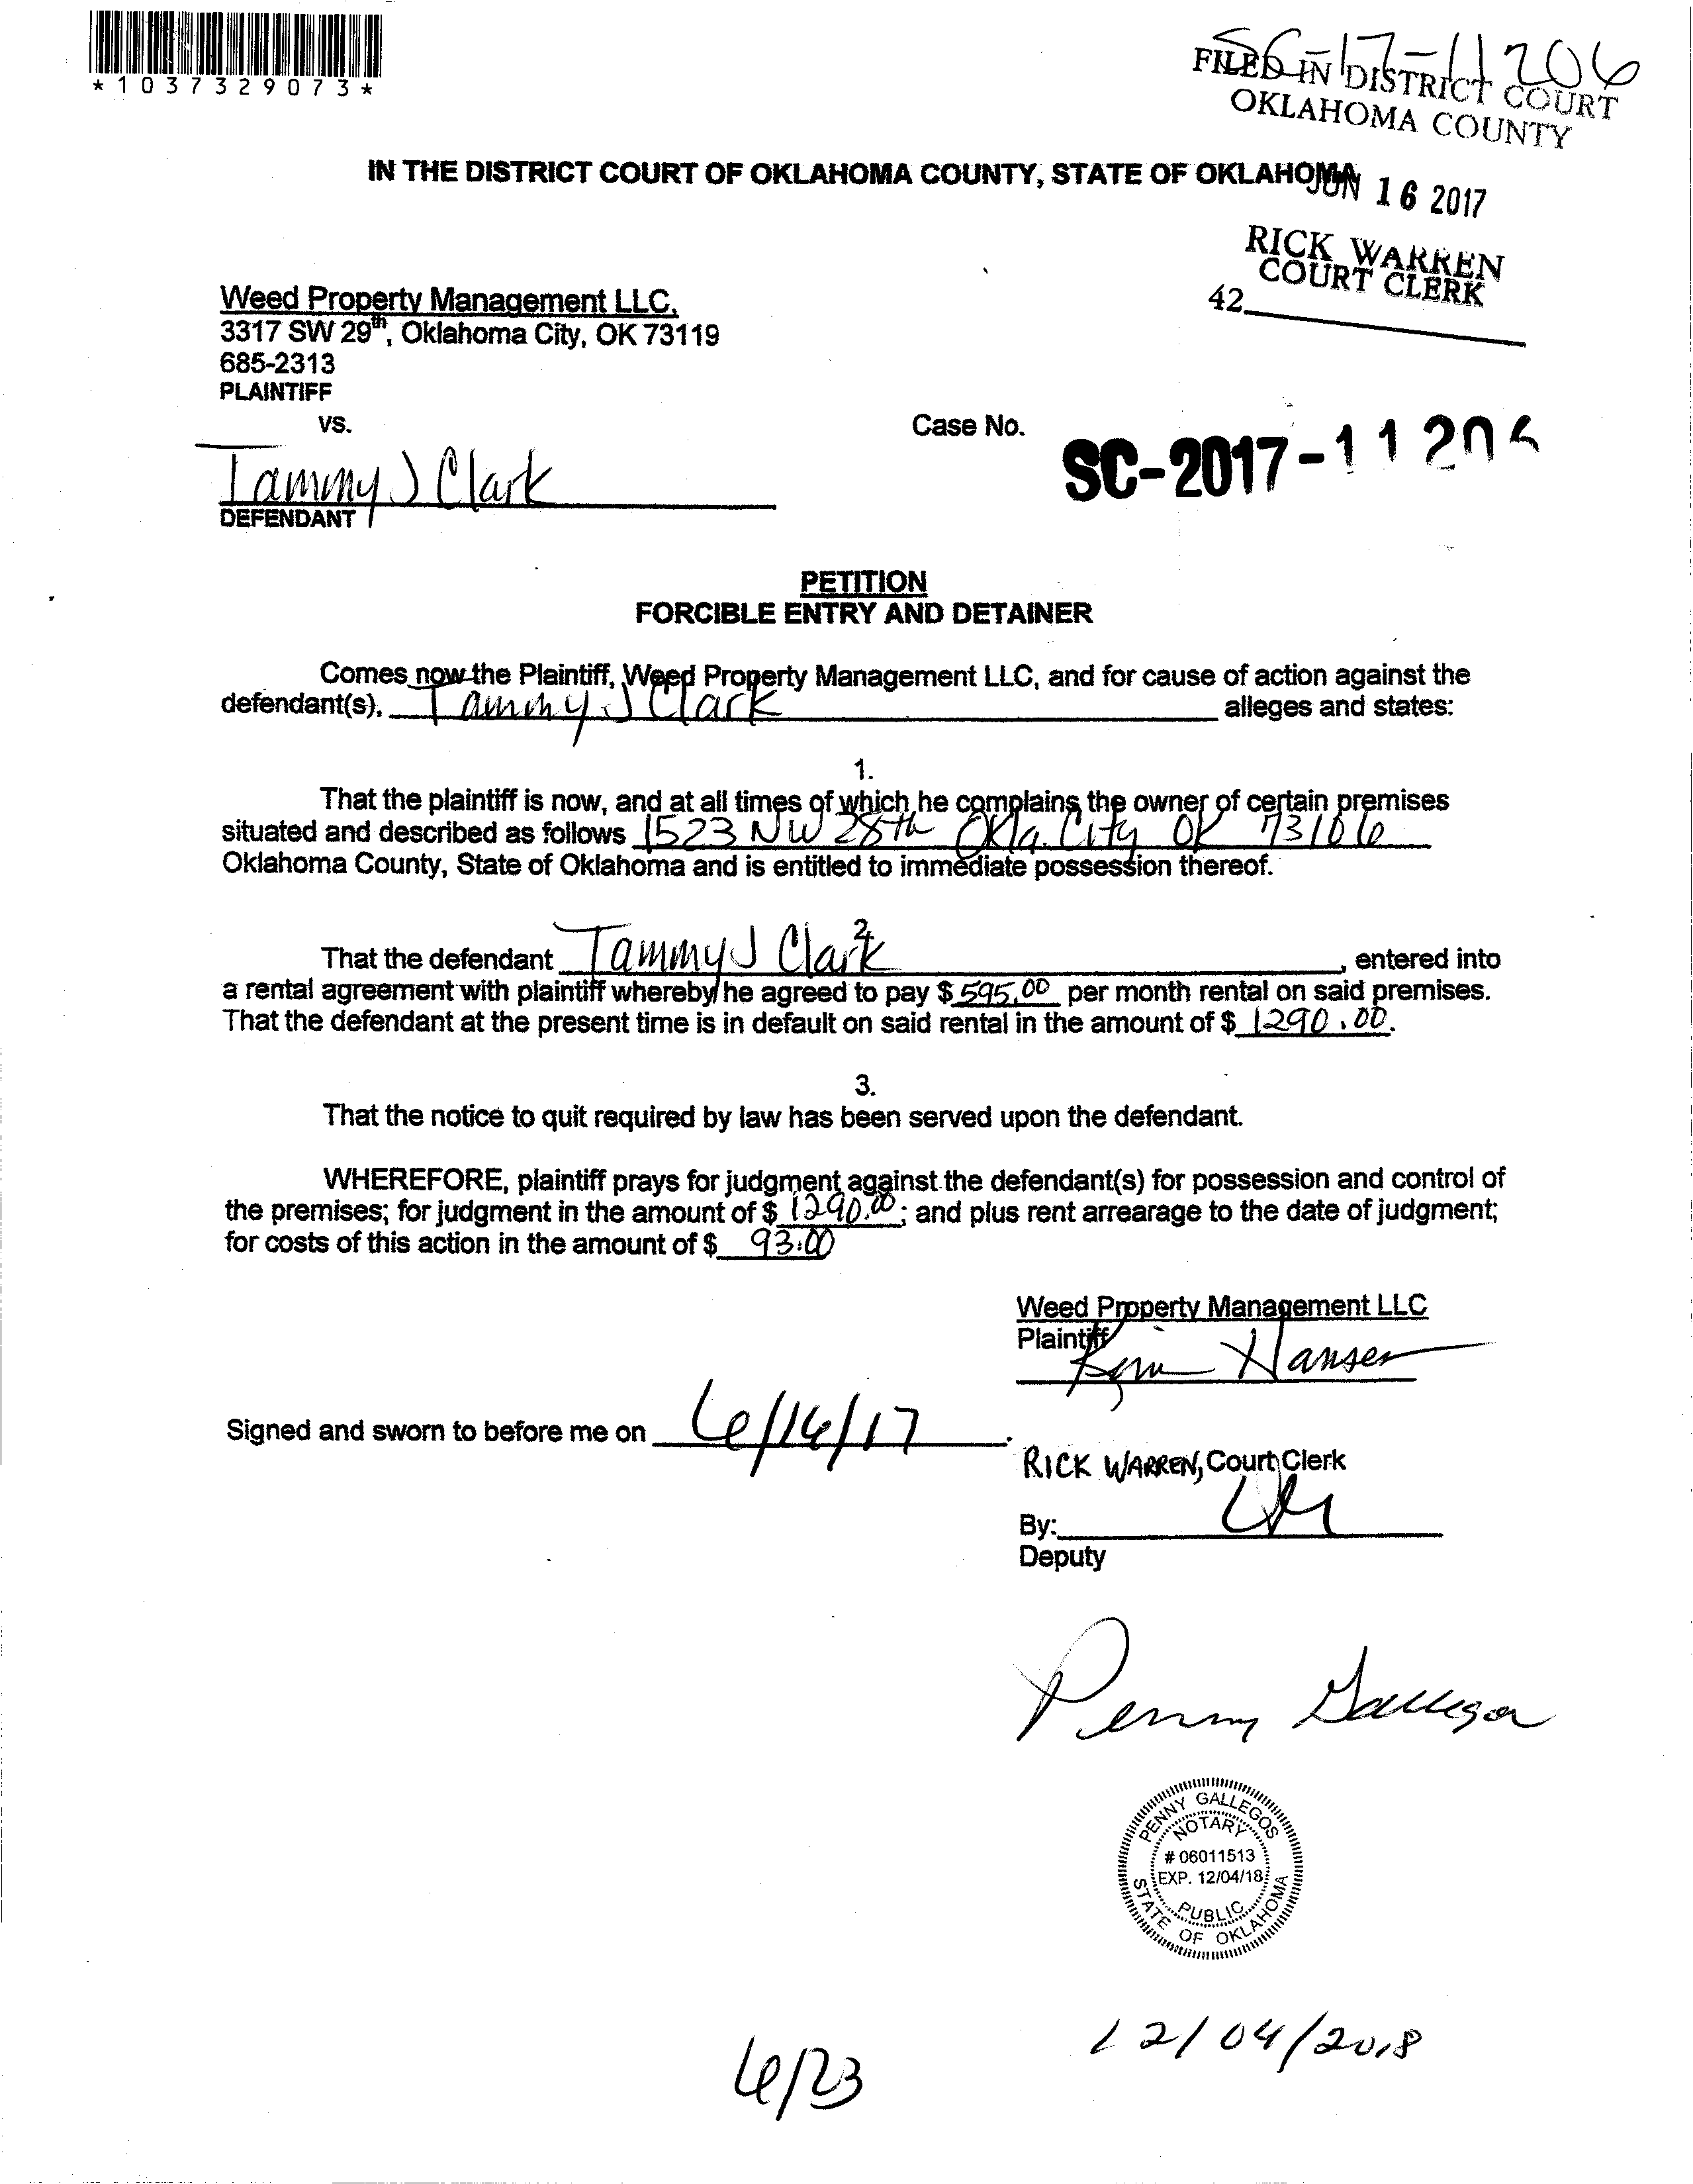 *1037329073*
SC-17-11206
FILED IN DISTRICT COURT
OKLAHOMA COUNTY
IN THE DISTRICT COURT OF OKLAHOMA COUNTY, STATE OF OKLAHOMA
JUN 16 2017
RICK WARREN
COURT CLERK
42
Weed Property Management LLC,
3317 SW 29th, Oklahoma City, OK 73119
685-2313
PLAINTIFF
VS.
Case No.
SC-2017-11206
Tammy J Clark
DEFENDANT
PETITION
FORCIBLE ENTRY AND DETAINER
Comes now the Plaintiff, Weed Property Management LLC, and for cause of action against the
defendant(s), Tammy J Clark alleges and states:
1.
That the plaintiff is now, and at all times of which he complains the owner of certain premises
situated and described as follows 1523 NW 28th Okla. City OK 73106
Oklahoma County, State of Oklahoma and is entitled to immediate possession thereof.
2.
That the defendant Tammy J Clark, entered into
a rental agreement with plaintiff whereby he agreed to pay $ 595.00 per month rental on said premises.
That the defendant at the present time is in default on said rental in the amount of $ 1290.00.
3.
That the notice to quit required by law has been served upon the defendant.
WHEREFORE, plaintiff prays for judgment against the defendant(s) for possession and control of
the premises; for judgment in the amount of $ 1290.00; and plus rent arrearage to the date of judgment;
for costs of this action in the amount of $ 93.00
Weed Property Management LLC
Plaintiff
Hansen
Signed and sworn to before me on 6/16/17.
RICK WARREN, Court Clerk
By:
Deputy
Penny Gallegos
PENNY GALLEGOS
NOTARY
# 06011513
EXP. 12/04/18
PUBLIC
STATE OF OKLAHOMA
12/04/2018
6/23